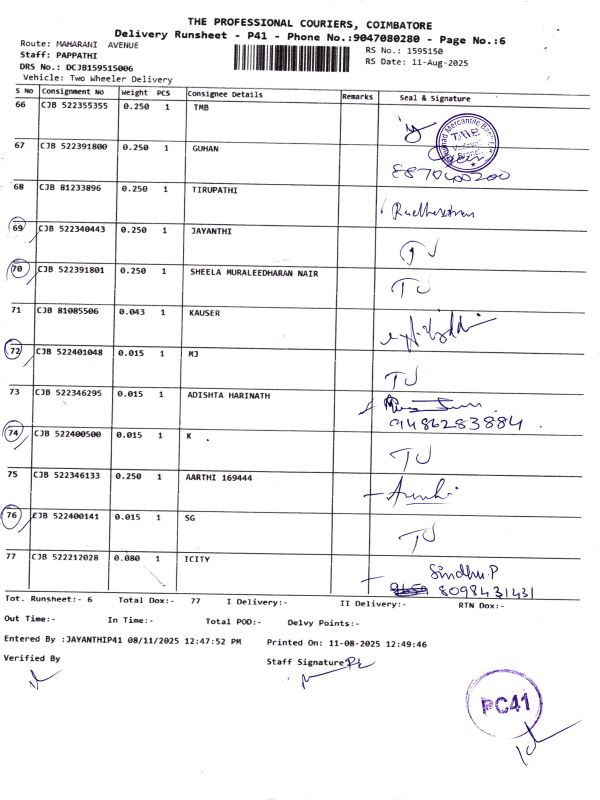 THE PROFESSIONAL COURIERS, COIMBATORE
Delivery Runsheet - P41 - Phone No.:9047080280 - Page No.:6
Route: MAHARANI AVENUE
RS No.: 1595150
Staff: PAPPATHI
RS Date: 11-Aug-2025
DRS No.: DCJB159515006
Vehicle: Two Wheeler Delivery
S No Consignment No Weight PCS Consignee Details Remarks Seal & Signature
66 CJB 522355355 0.250 1 TMB
67 CJB 522391800 0.250 1 GUHAN
8870400200
68 CJB 81233896 0.250 1 TIRUPATHI
69 CJB 522340443 0.250 1 JAYANTHI
TJ
70 CJB 522391801 0.250 1 SHEELA MURALEEDHARAN NAIR
TJ
71 CJB 81085506 0.043 1 KAUSER
72 CJB 522401048 0.015 1 MJ
TJ
73 CJB 522346295 0.015 1 ADISHTA HARINATH
9486283884
74 CJB 522400500 0.015 1 K .
TJ
75 CJB 522346133 0.250 1 AARTHI 169444
76 CJB 522400141 0.015 1 SG
TJ
77 CJB 522212028 0.080 1 ICITY
Sindhu.P
8098431431
Tot. Runsheet:- 6 Total Dox:- 77 I Delivery:- II Delivery:- RTN Dox:-
Out Time:- In Time:- Total POD:- Delvy Points:-
Entered By :JAYANTHIP41 08/11/2025 12:47:52 PM Printed On: 11-08-2025 12:49:46
Verified By Staff Signature
PC41